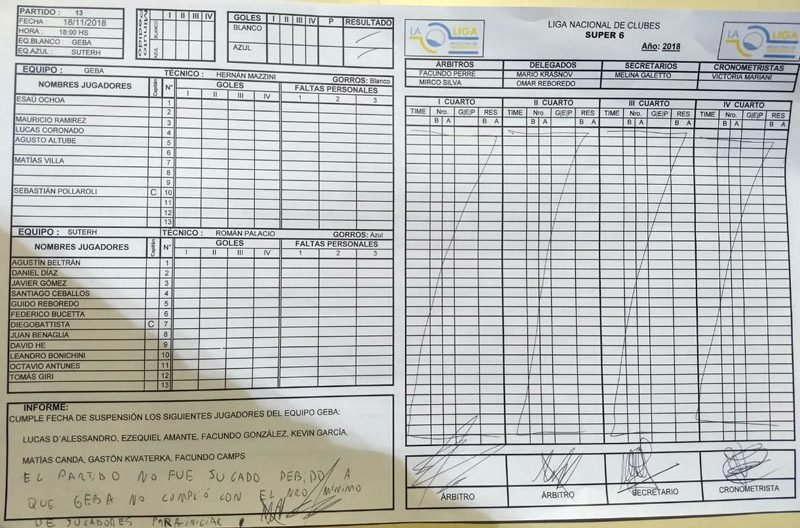 PARTIDO : 13
FECHA : 18/11/2018
HORA : 18:00 HS
EQ.BLANCO: GEBA
EQ.AZUL: SUTERH
BLANCO
AZUL
I II III IV
GOLES I II III IV P RESULTADO
BLANCO
AZUL
EQUIPO : GEBA TÉCNICO : HERNÁN MAZZINI GORROS: Blanco
NOMBRES JUGADORES Capitán N° GOLES FALTAS PERSONALES
I II III IV 1 2 3
ESAÚ OCHOA 1
2
MAURICIO RAMIREZ 3
LUCAS CORONADO 4
AGUSTO ALTUBE 5
6
MATÍAS VILLA 7
8
9
SEBASTIÁN POLLAROLI C 10
11
12
13
EQUIPO : SUTERH TÉCNICO : ROMÁN PALACIO GORROS: Azul
NOMBRES JUGADORES Capitán N° GOLES FALTAS PERSONALES
I II III IV 1 2 3
AGUSTÍN BELTRÁN 1
DANIEL DÍAZ 2
JAVIER GÓMEZ 3
SANTIAGO CEBALLOS 4
GUIDO REBOREDO 5
FEDERICO BUCETTA 6
DIEGOBATTISTA C 7
JUAN BENAGLIA 8
DAVID HE 9
LEANDRO BONICHINI 10
OCTAVIO ANTUNES 11
TOMÁS GIRI 12
13
INFORME:
CUMPLE FECHA DE SUSPENSIÓN LOS SIGUIENTES JUGADORES DEL EQUIPO GEBA:
LUCAS D´ALESSANDRO, EZEQUIEL AMANTE, FACUNDO GONZÁLEZ, KEVIN GARCÍA,
MATÍAS CANDA, GASTÓN KWATERKA, FACUNDO CAMPS
EL PARTIDO NO FUE JUGADO DEBIDO A
QUE GEBA NO CUMPLIÓ CON EL NRO MÍNIMO
DE JUGADORES PARA INICIAR
LA LIGA
LIGA NACIONAL DE CLUBES
SUPER 6
Año: 2018
LA LIGA
ARBITROS DELEGADOS SECRETARIOS CRONOMETRISTAS
FACUNDO PERRE MARIO KRASNOV MELINA GALETTO VICTORIA MARIANI
MIRCO SILVA OMAR REBOREDO
I CUARTO II CUARTO III CUARTO IV CUARTO
TIME Nro. G|E|P RES TIME Nro. G|E|P RES TIME Nro. G|E|P RES TIME Nro. G|E|P RES
B A B A B A B A B A B A B A B A
ÁRBITRO ÁRBITRO SECRETARIO CRONOMETRISTA